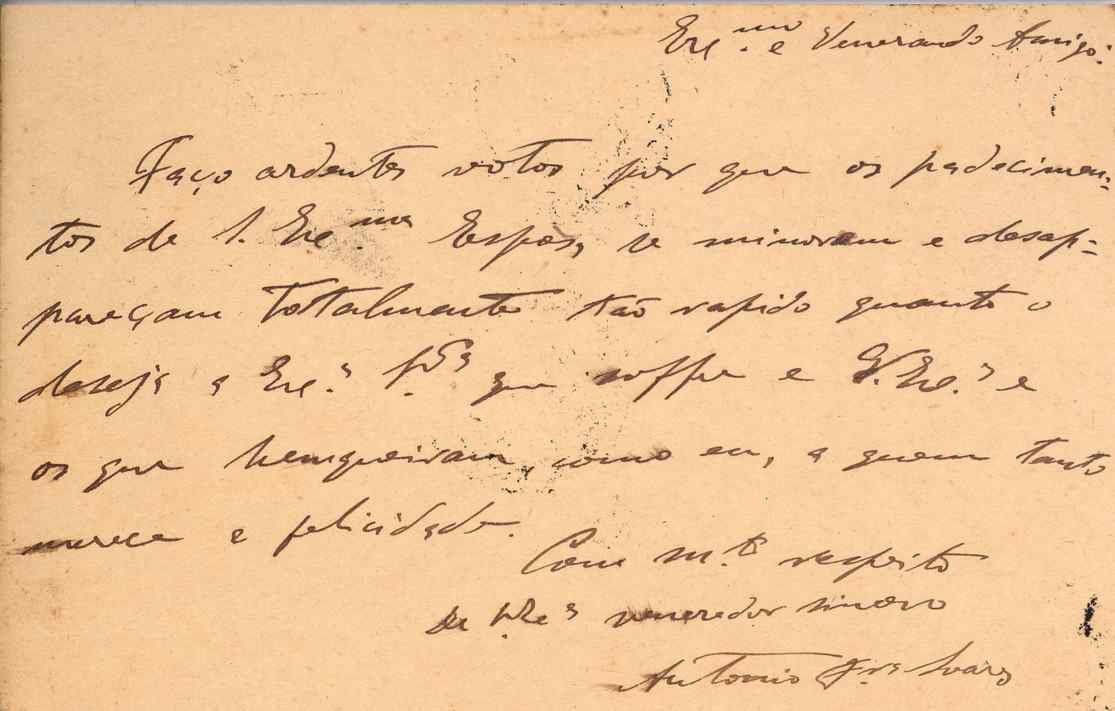 Exc.mo e Venerando Amigo:
Faço ardentes votos por que os padecimen-
tos de S. Exc.ma Espoza, se minoram e desap-
pareçam tottalmente tão rapido quanto o
deseja a Exc.a Sra que soffre e V. Exc.a e
os que bemqueiram, como eu, a quem tanto
merece e felicidade.
Com m.to respeito
De V. Exc.a venerador sincero
Antonio Soares